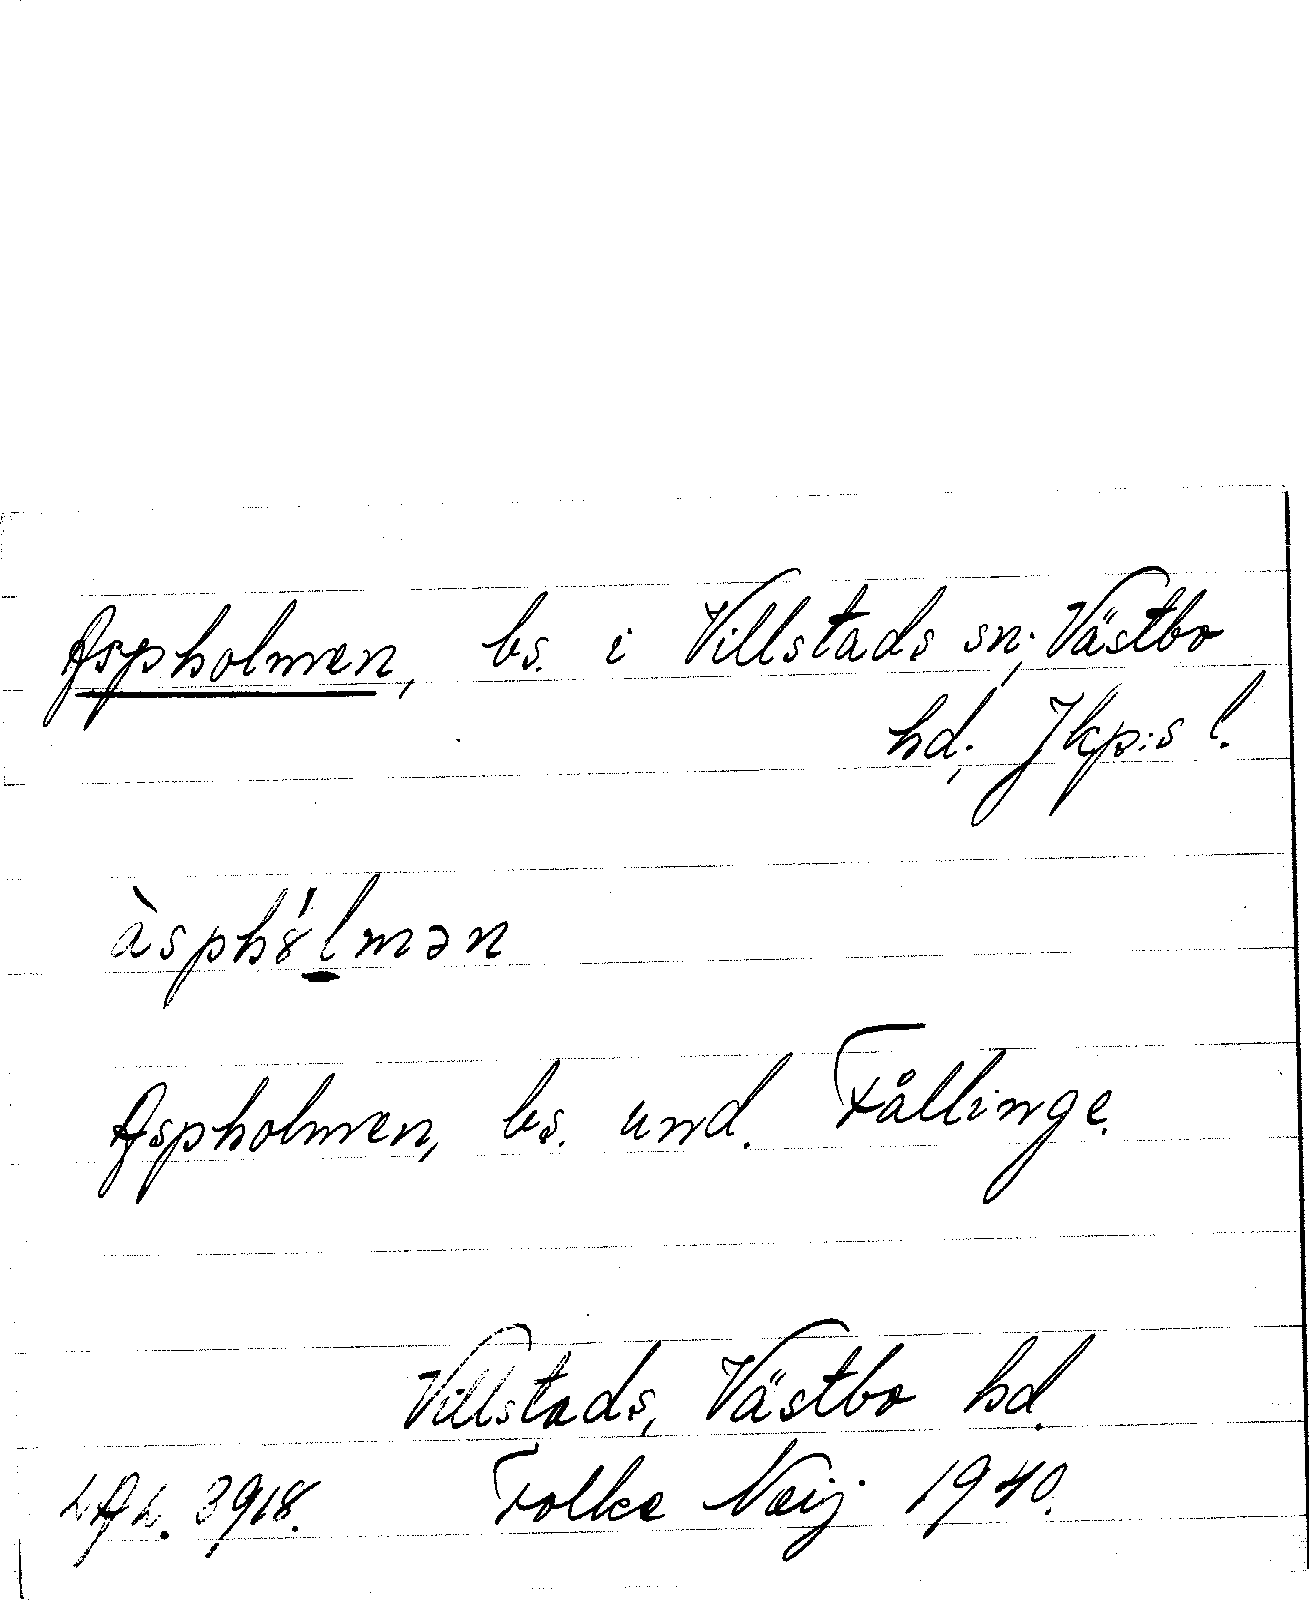 Aspholmen, bs. i Villstads sn; Västbo
hd; Jkp:s l.
àsphȣ́lmən
Aspholmen, bs. und. Fållinge.
Villstads, Västbo hd.
LAL. 3918. Folke Neij 1940.